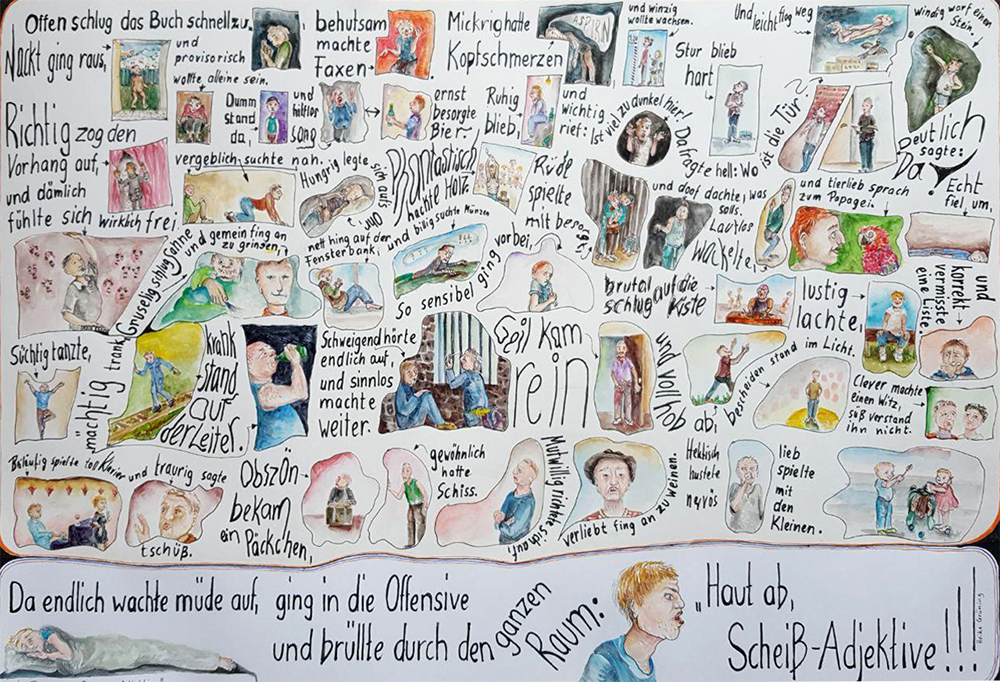 Offen schlug das Buch schnell zu.
Nackt ging raus,
und
provisorisch
wollte alleine sein.
behutsam
machte
Faxen.
Mickrig hatte
Kopfschmerzen
ASPIRIN
und winzig
wollte wachsen.
Stur blieb
hart
Und
leicht flog weg
windig warf einen
Stein.
Dumm
stand
da,
und
hilflos
sang
ernst
besorgte
Bier.
Ruhig
blieb,
und
wichtig
rief: Ist
viel zu dunkel hier!
Da fragte hell: Wo
ist die Tür?
Deutlich
sagte:
Da!
Richtig zog den
Vorhang auf,
und dämlich
fühlte sich wirklich frei.
vergeblich suchte nah.
Hungrig legte
sich aufs
Ohr,
Phantastisch
hackte Holz.
Rüde
spielte
mit besorgt,
und doof dachte, was
solls.
Lautlos
wackelte,
und tierlieb sprach
zum Papagei.
Echt
fiel um,
Gruselig schlug Sahne
und gemein fing an
zu grinsen,
nett hing auf der
Fensterbank,
und billig suchte Münzen
So sensibel ging
vorbei,
brutal
schlug auf die
Kiste
lustig
lachte,
und
korrekt
vermisste
eine Liste.
Süchtig tanzte,
mächtig trank
krank
stand
auf
der Leiter.
Schweigend hörte
endlich auf,
und sinnlos
machte
weiter.
Geil kam
rein
und voll hob ab,
bescheiden stand im Licht.
Clever machte
einen Witz,
süß verstand
ihn nicht.
Beiläufig spielte toll Klavier
und traurig sagte
tschüß.
Obszön
bekam
ein Päckchen,
gewöhnlich
hatte
Schiss.
Mutwillig richtete sich auf,
verliebt fing an zu weinen.
Hektisch
hustete
nervös
lieb
spielte
mit
den
Kleinen.
Da endlich wachte müde auf, ging in die Offensive
und brüllte durch den ganzen
Raum:
„Haut ab,
Scheiß-Adjektive!!!"